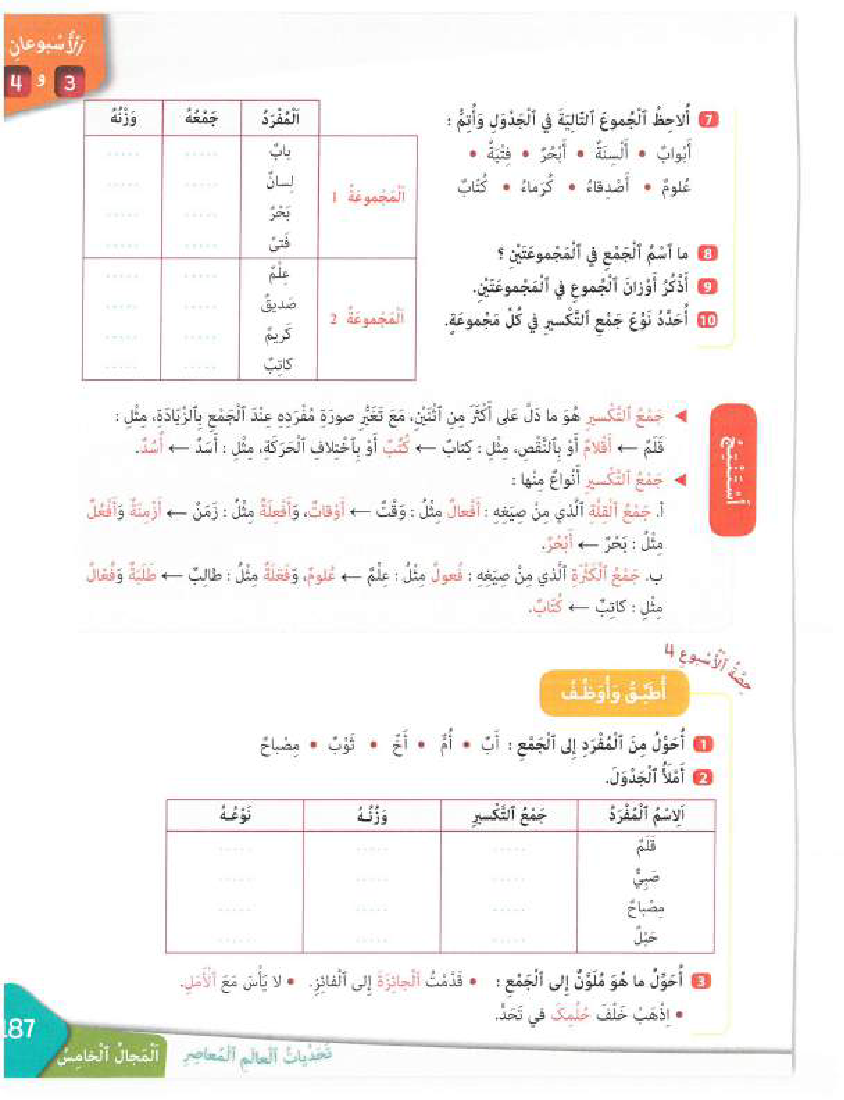 اَلْأُسْبوعانِ
3 و 4
7 أُلاحِظُ ٱلْجُموعَ ٱلتّالِيَةَ في ٱلْجَدْوَلِ وَأُتِمُّ :
أَبْوابٌ • أَلْسِنَةٌ • أَبْحُرٌ • فِتْيَةٌ •
عُلومٌ • أَصْدِقاءُ • كُرَماءُ • كُتّابٌ
8 ما ٱسْمُ ٱلْجَمْعِ في ٱلْمَجْموعَتَيْنِ ؟
9 أَذْكُرُ أَوْزانَ ٱلْجُموعِ في ٱلْمَجْموعَتَيْنِ.
10 أُحَدِّدُ نَوْعَ جَمْعِ ٱلتَّكْسيرِ في كُلِّ مَجْموعَةٍ.
اَلْمُفْرَدُ جَمْعُهُ وَزْنُهُ
اَلْمَجْموعَةُ 1
بابٌ ..... .....
لِسانٌ ..... .....
بَحْرٌ ..... .....
فَتىً ..... .....
اَلْمَجْموعَةُ 2
عِلْمٌ ..... .....
صَديقٌ ..... .....
كَريمٌ ..... .....
كاتِبٌ ..... .....
أَسْتَنْتِجُ
◄ جَمْعُ ٱلتَّكْسيرِ هُوَ ما دَلَّ عَلى أَكْثَرَ مِنِ ٱثْنَيْنِ، مَعَ تَغَيُّرِ صورَةِ مُفْرَدِهِ عِنْدَ ٱلْجَمْعِ بِٱلزِّيادَةِ، مِثْلُ :
قَلَمٌ ← أَقْلامٌ أَوْ بِٱلنَّقْصِ، مِثْلُ : كِتابٌ ← كُتُبٌ أَوْ بِٱخْتِلافِ ٱلْحَرَكَةِ، مِثْلُ : أَسَدٌ ← أُسُدٌ.
◄ جَمْعُ ٱلتَّكْسيرِ أَنْواعٌ مِنْها :
أ. جَمْعُ ٱلْقِلَّةِ ٱلَّذي مِنْ صِيَغِهِ : أَفْعالٌ مِثْلُ : وَقْتٌ ← أَوْقاتٌ، وَأَفْعِلَةٌ مِثْلُ : زَمَنٌ ← أَزْمِنَةٌ وَأَفْعُلٌ
مِثْلُ : بَحْرٌ ← أَبْحُرٌ.
ب. جَمْعُ ٱلْكَثْرَةِ ٱلَّذي مِنْ صِيَغِهِ : فُعولٌ مِثْلُ : عِلْمٌ ← عُلومٌ، وَفَعَلَةٌ مِثْلُ : طالِبٌ ← طَلَبَةٌ وَفُعّالٌ
مِثْلُ : كاتِبٌ ← كُتّابٌ.
حِصَّةُ ٱلْأُسْبوعِ 4
أُطَبِّقُ وَأُوَظِّفُ
1 أُحَوِّلُ مِنَ ٱلْمُفْرَدِ إِلى ٱلْجَمْعِ : أَبٌ • أُمٌّ • أَخٌ • ثَوْبٌ • مِصْباحٌ
2 أَمْلَأُ ٱلْجَدْوَلَ.
اَلِاسْمُ ٱلْمُفْرَدُ جَمْعُ ٱلتَّكْسيرِ وَزْنُهُ نَوْعُهُ
قَلَمٌ ..... ..... .....
صَبِيٌّ ..... ..... .....
مِصْباحٌ ..... ..... .....
حَبْلٌ ..... ..... .....
3 أُحَوِّلُ ما هُوَ مُلَوَّنٌ إِلى ٱلْجَمْعِ : • قَدَّمْتُ ٱلْجائِزَةَ إِلى ٱلْفائِزِ. • لا يَأْسَ مَعَ ٱلْأَمَلِ.
• اِذْهَبْ خَلْفَ حُلْمِكَ في تَحَدٍّ.
187
اَلْمَجالُ ٱلْخامِسُ
تَحَدِّياتُ ٱلْعالَمِ ٱلْمُعاصِرِ